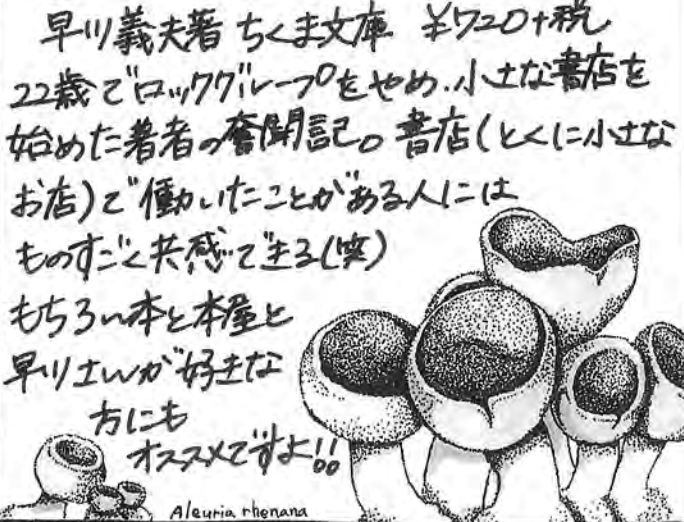 早川義夫著 ちくま文庫 ¥720+税
22歳でロックグループをやめ、小さな書店を
始めた著者の奮闘記。書店(とくに小さな
お店)で働いたことがある人には
ものすごく共感できる(笑)
もちろん本と本屋と
早川さんが好きな
方にも
オススメですよ!!
Aleuria rhenana